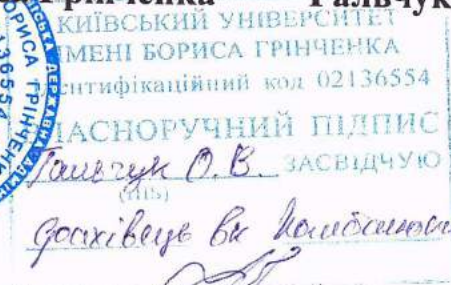 Грінченка Гальчук
КИЇВСЬКИЙ УНІВЕРСИТЕТ
ІМЕНІ БОРИСА ГРІНЧЕНКА
ентифікаційний код 02136554
ЛАСНОРУЧНИЙ ПІДПИС
Гальчук О.В. ЗАСВІДЧУЮ
(ПІБ)
фахівець вк